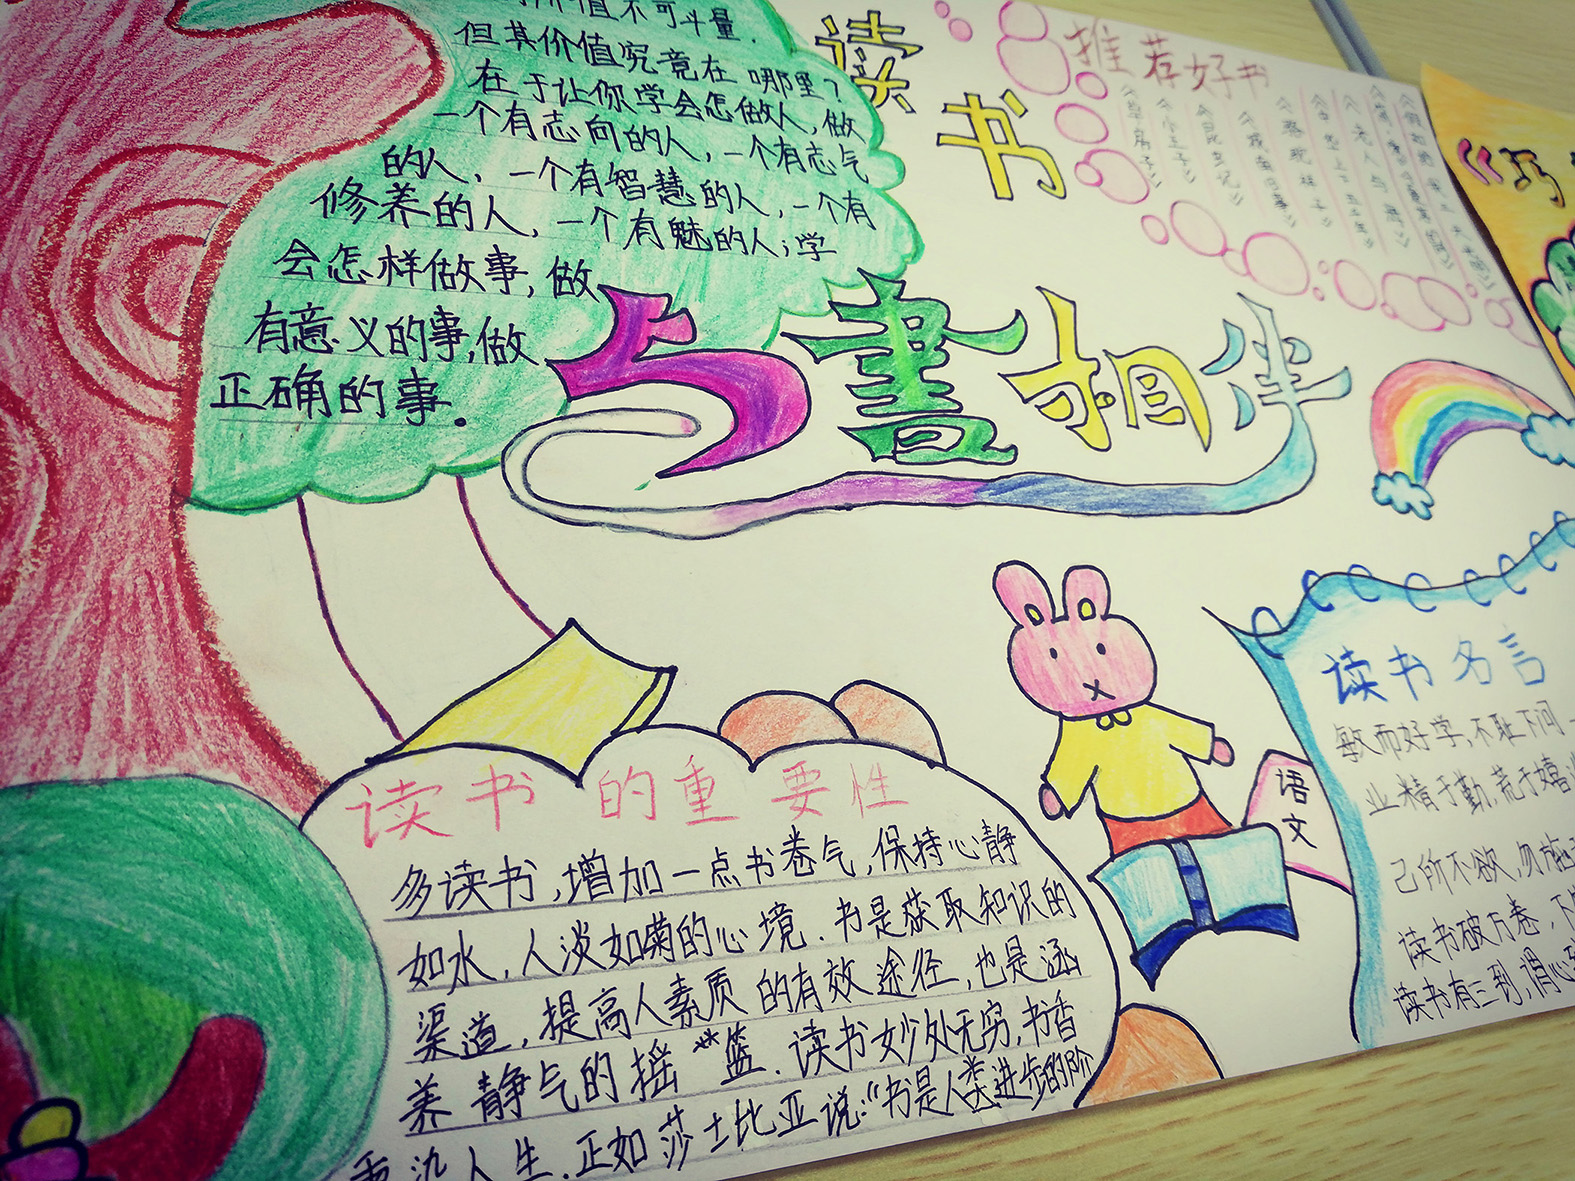 价值不可斗量.
但其价值究竟在哪里？
在于让你学会怎做人，做
一个有志向的人，一个有志气
的人，一个有智慧的人，一个有
修养的人，一个有魅的人；学
会怎样做事，做
有意义的事，做
正确的事.
读书
与書相伴
推荐好书
《草房子》
《小王子》
《昆虫记》
读书名言
敏而好学，不耻下问
业精于勤，荒于嬉
己所不欲，勿施
读书破万卷，下
读书有三到，谓心到
语文
读书的重要性
多读书，增加一点书卷气，保持心静
如水，人淡如菊的心境．书是获取知识的
渠道，提高人素质的有效途径，也是涵
养静气的摇篮．读书妙处无穷，书香
熏染人生．正如莎士比亚说：“书是人类进步的阶
《巧